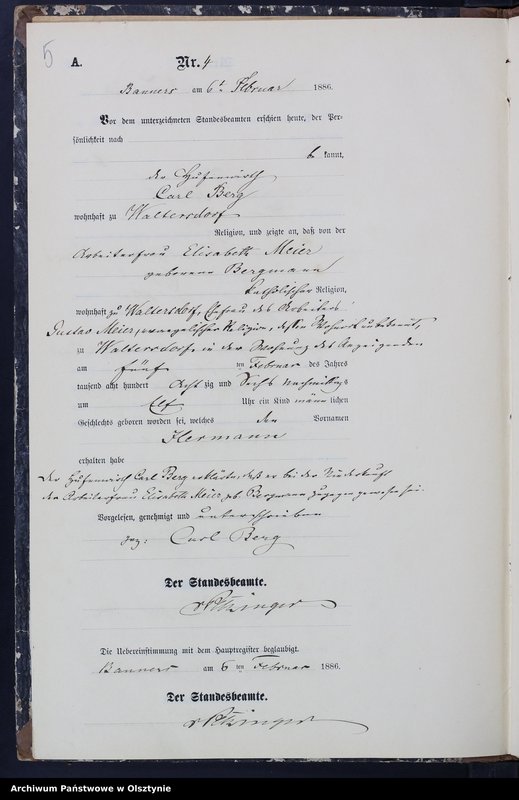 5
A.
Nr. 4
Banners am 6t Februar 1886.
Vor dem unterzeichneten Standesbeamten erschien heute, der Per-
sönlichkeit nach
b kannt,
der Hufenwirth
Carl Berg
wohnhaft zu Waltersdorf
Religion, und zeigte an, daß von der
Arbeiterfrau Elisabeth Meier
geborene Bergmann
katholischer Religion,
wohnhaft zu Waltersdorf, Ehefrau des Arbeiters
Gustav Meier, evangelischer Religion, dessen Wohnort unbekannt,
zu Waltersdorf in der Wohnung des Anzeigenden
am fünf ten Februar des Jahres
tausend acht hundert Acht zig und Sechs Nachmittags
um Elf Uhr ein Kind männ lichen
Geschlechts geboren worden sei, welches den Vornamen
Hermann
erhalten habe
Der Hufenwirth Carl Berg erklärte, daß er bei der Niederkunft
der Arbeiterfrau Elisabeth Meier, geb. Bergmann zugegen gewesen sei.
Vorgelesen, genehmigt und unterschrieben
gez: Carl Berg
Der Standesbeamte.
Die Uebereinstimmung mit dem Hauptregister beglaubigt.
Banners am 6 ten Februar 1886.
Der Standesbeamte.
Archiwum Państwowe w Olsztynie